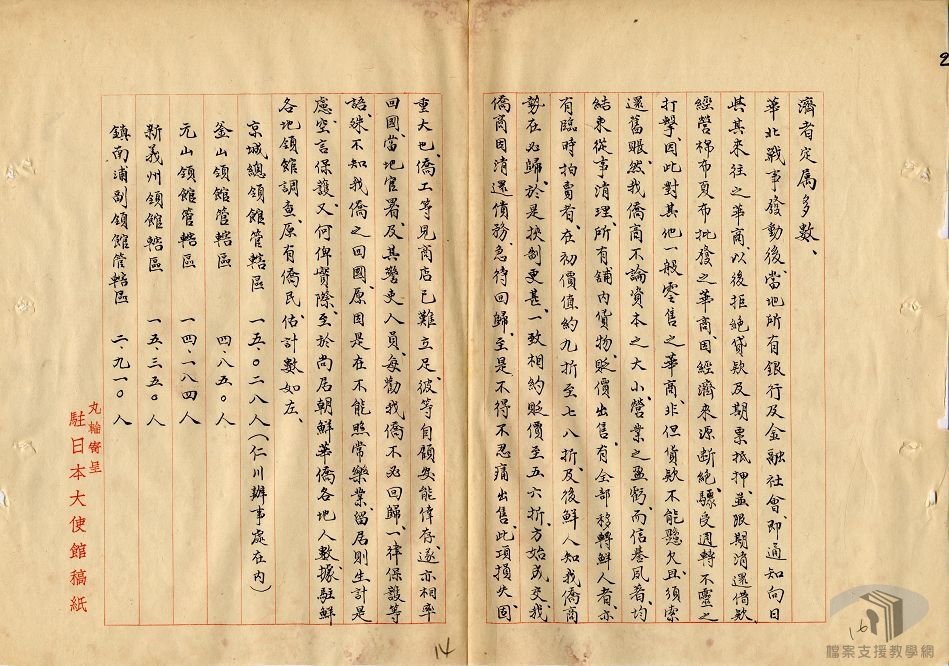 濟者定属多數、
華北戰事發動後、當地所有銀行及金融社會、即通知向日
與其來往之華商、以後拒絶貸欵及期票抵押、並限期清還借欵、
經營棉布夏布批發之華商、因經濟來源斷絶、驟受週轉不靈之
打擊、因此對其他一般零售之華商、非但貨欵不能懸欠、且須索
還舊賬、然我僑商不論資本之大小、營業之盈虧、而信譽夙著、均
結束從事清理、所有舖内貨物、貶價出售、有全部移轉鮮人者、亦
有臨時拍賣者、在初價值約九折至七八折、及後鮮人知我僑商
勢在必歸、於是挾制更甚、一致相約貶價至五六折、方始成交、我
僑商因清還債務、急待回歸、至是不得不忍痛出售、此項損失固
重大也、僑工等見商店已難立足、彼等自顧安能倖存、遂亦相率
回國、當地官署、及其警吏人員、每勸我僑不必回歸、一律保護等
語、殊不知我僑之回國、原因是在不能照常樂業、留居則生計是
慮、空言保護、又何俾實際、至於尚居朝鮮華僑各地人數、據駐鮮
各地領館調查、原有僑民、估計數如左、
京城總領館管轄區 一五・〇二八人(仁川辦事處在内)
釜山領館管轄區 四・八五〇人
元山領館管轄區 一四・一八四人
新義州領館轄區 一五・三五〇人
鎮南浦副領館管轄區 二・九一〇人
駐日本大使館稿紙
14
16
2
檔案支援教學網